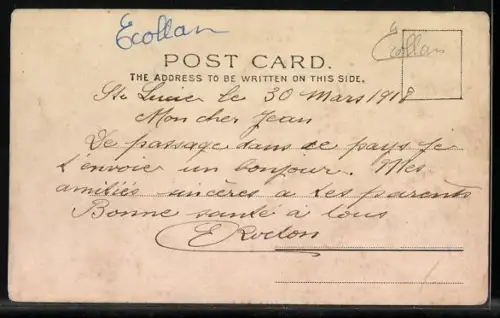 Ecollan
Ecollan
POST CARD.
THE ADDRESS TO BE WRITTEN ON THIS SIDE.
Ste Lucie le 30 Mars 1918
Mon cher Jean
De passage dans ce pays je
t'envoie un bonjour. Mes
amitiés sincères a tes parents
Bonne santé à tous